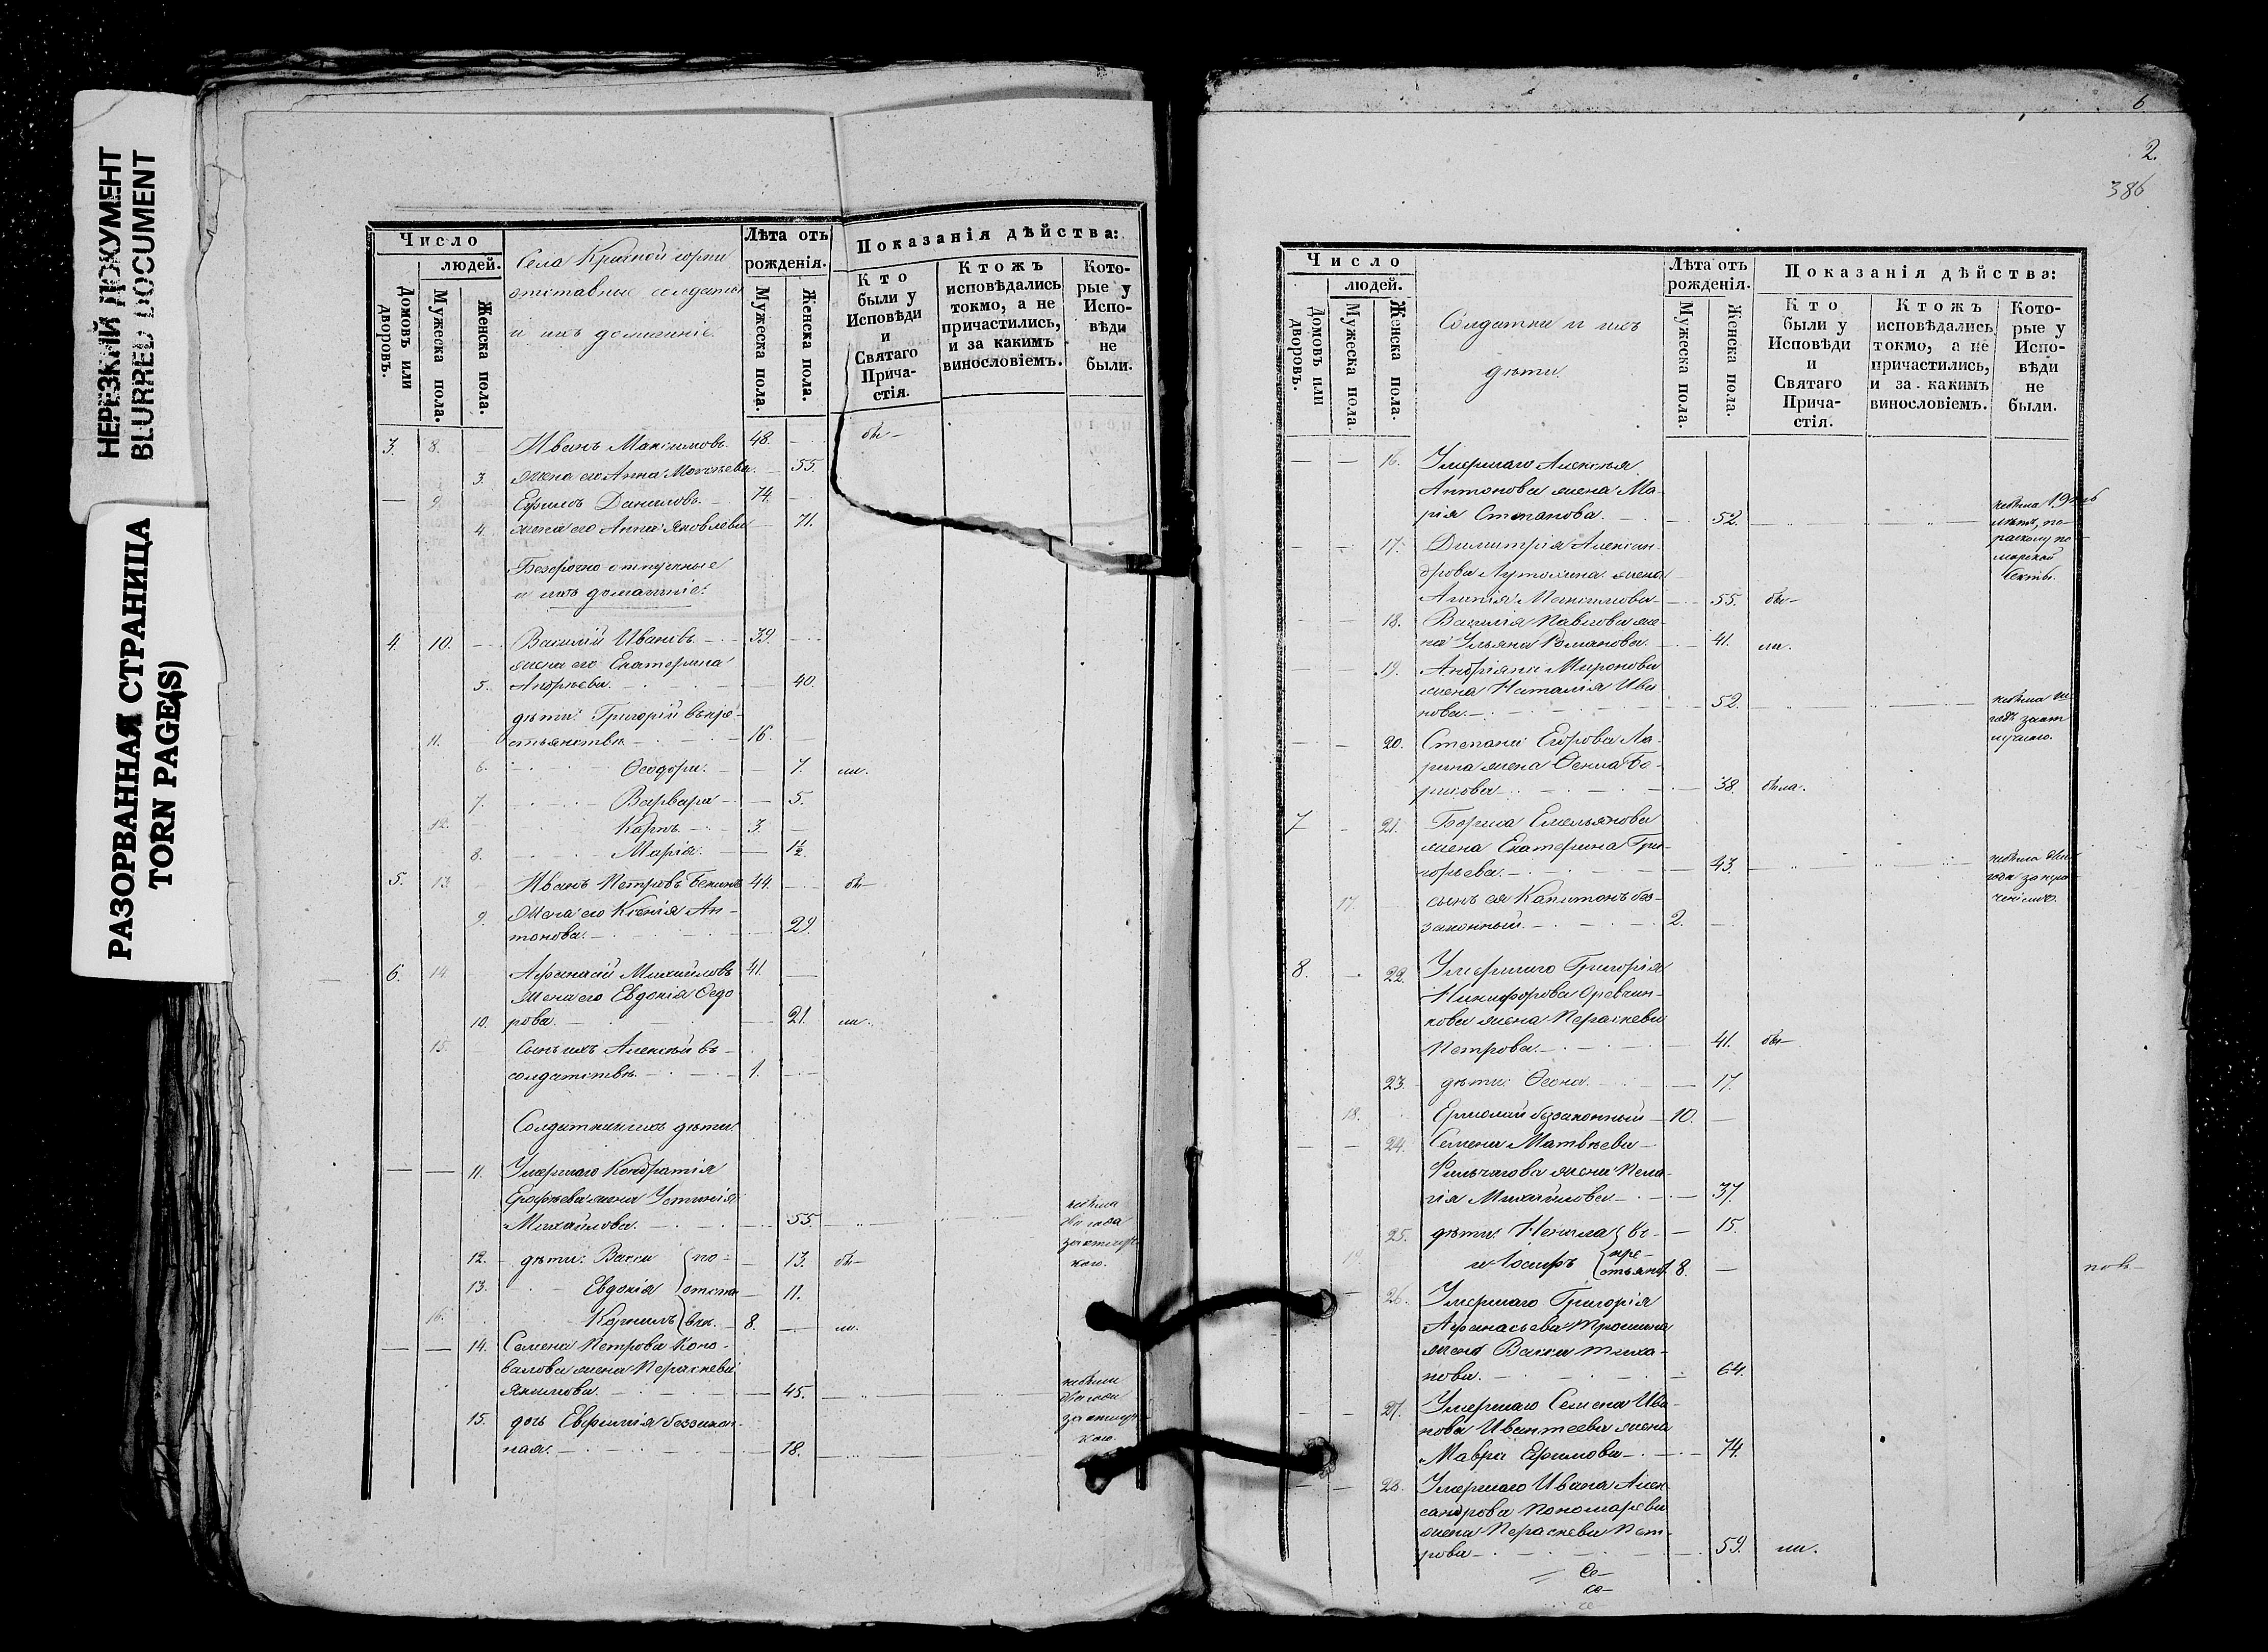 НЕРЕЗКИЙ ДОКУМЕНТ
BLURRED DOCUMENT
РАЗОРВАННАЯ СТРАНИЦА
TORN PAGE(S)
Число
людей.
Домовъ или дворовъ.
Мужеска пола.
Женска пола.
Села Красной горки
отставные солдаты
и ихъ домашніе.
Лѣта отъ
рожденія.
Мужеска пола.
Женска пола.
Показанія дѣйства:
Кто
были у
Исповѣди
и
Святаго
Прича-
стія.
Ктожъ
исповѣдались
токмо, а не
причастились,
и за какимъ
винословіемъ.
Кото-
рые у
Испо-
вѣди
не
были.
3. 8. Иванъ Максимовъ 48. бы-
3. жена его Анна Моисеева. 55.
9. Ефимъ Даниловъ. 74.
4. жена его Анна Яковлева 71.
Безсрочно-отпускные
и ихъ домашніе:
4. 10. Василій Ивановъ 39.
жена его Екатерина
5. Андреева. 40.
дѣти: Григорій въ кре-
11. стьянствѣ 16.
6. Ѳеодора. 7. ли.
7. Варвара 5.
12. Карпъ. 3.
8. Марія. 1½
5. 13. Иванъ Петровъ 44. бы-
9. жена его Ксенія Ан-
тонова. 29.
6. 14. Афанасій Михайловъ 41.
жена его Евдокія Ѳедо
10. рова. 21. ли.
15. сынъ ихъ Алексѣй въ
солдатствѣ. 1.
Солдатки и ихъ дѣти
11. Умершаго Кондратія
Ерофѣева жена Устинія
Михайлова. 55. небыла
два года
12. дѣти: Васса по- 13. бы-
13. Евдокія отста 11.
16. Корнилъ 8. ли.
14. Семена Петрова Коно-
валова жена Параскева
Якимова. 45. небыли
два года
15. дочь Евфимія беззакон-
ная. 18.
6
2.
386
Число
людей.
Домовъ или дворовъ.
Мужеска пола.
Женска пола.
Солдатки и ихъ
дѣти.
Лѣта отъ
рожденія.
Мужеска пола.
Женска пола.
Показанія дѣйства:
Кто
были у
Исповѣди
и
Святаго
Прича-
стія.
Ктожъ
исповѣдались
токмо, а не
причастились,
и за какимъ
винословіемъ.
Кото-
рые у
Испо-
вѣди
не
были.
16. Умершаго Алексѣя
Антонова жена Ма-
рія Степанова. 52. небыла 19
лѣтъ, по
расколу по
морской
секты.
17. Димитрія Алексан-
дрова Лутохина жена
Агапія Максимова 55. бы-
18. Василія Павлова же-
на Ульяна Романова. 41. ли.
19. Андріяна Миронова
жена Наталія Ива
нова. 52. небыла
20. Степана Егорова Ла-
рина жена Ѳекла Бо-
рисова 38. была.
7 21. Бориса Емельянова
жена Екатерина Гри-
горьева. 43. небыла
17. сынъ ея Капитонъ без-
законный. 2.
8. 22. Умершаго Григорія
Никифорова
жена Параскева
Петрова. 41. бы-
23. дѣти: Ѳеона. 17.
18. Ермолай беззаконный 10.
24. Семена Матвѣева
жена Пела-
гія Михайлова. 37.
25. дѣти: Ненила въ 15.
19. и Іосифъ кре-
стьянс. 8.
пов-
26. Умершаго Григорія
Афанасьева Трошина
жена Васса Тиха-
нова. 64.
27. Умершаго Семена Ива-
нова Ивантеева жена
Мавра Ефимова 74.
28. Умершаго Ивана Алек-
сандрова Пономарева
жена Параскева Пет-
рова 59. ли.
Се-